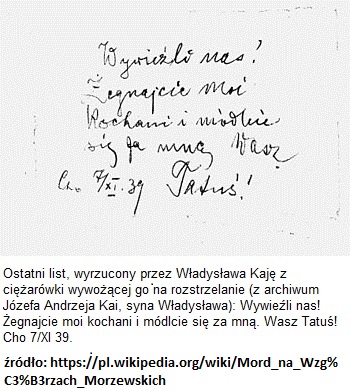 Wywieźli nas!
Żegnajcie moi
kochani i módlcie
się za mną Wasz
Cho 7/XI. 39 Tatuś!
Ostatni list, wyrzucony przez Władysława Kaję z
ciężarówki wywożącej go na rozstrzelanie (z archiwum
Józefa Andrzeja Kai, syna Władysława): Wywieźli nas!
Żegnajcie moi kochani i módlcie się za mną. Wasz Tatuś!
Cho 7/XI 39.
źródło: https://pl.wikipedia.org/wiki/Mord_na_Wzg%
C3%B3rzach_Morzewskich